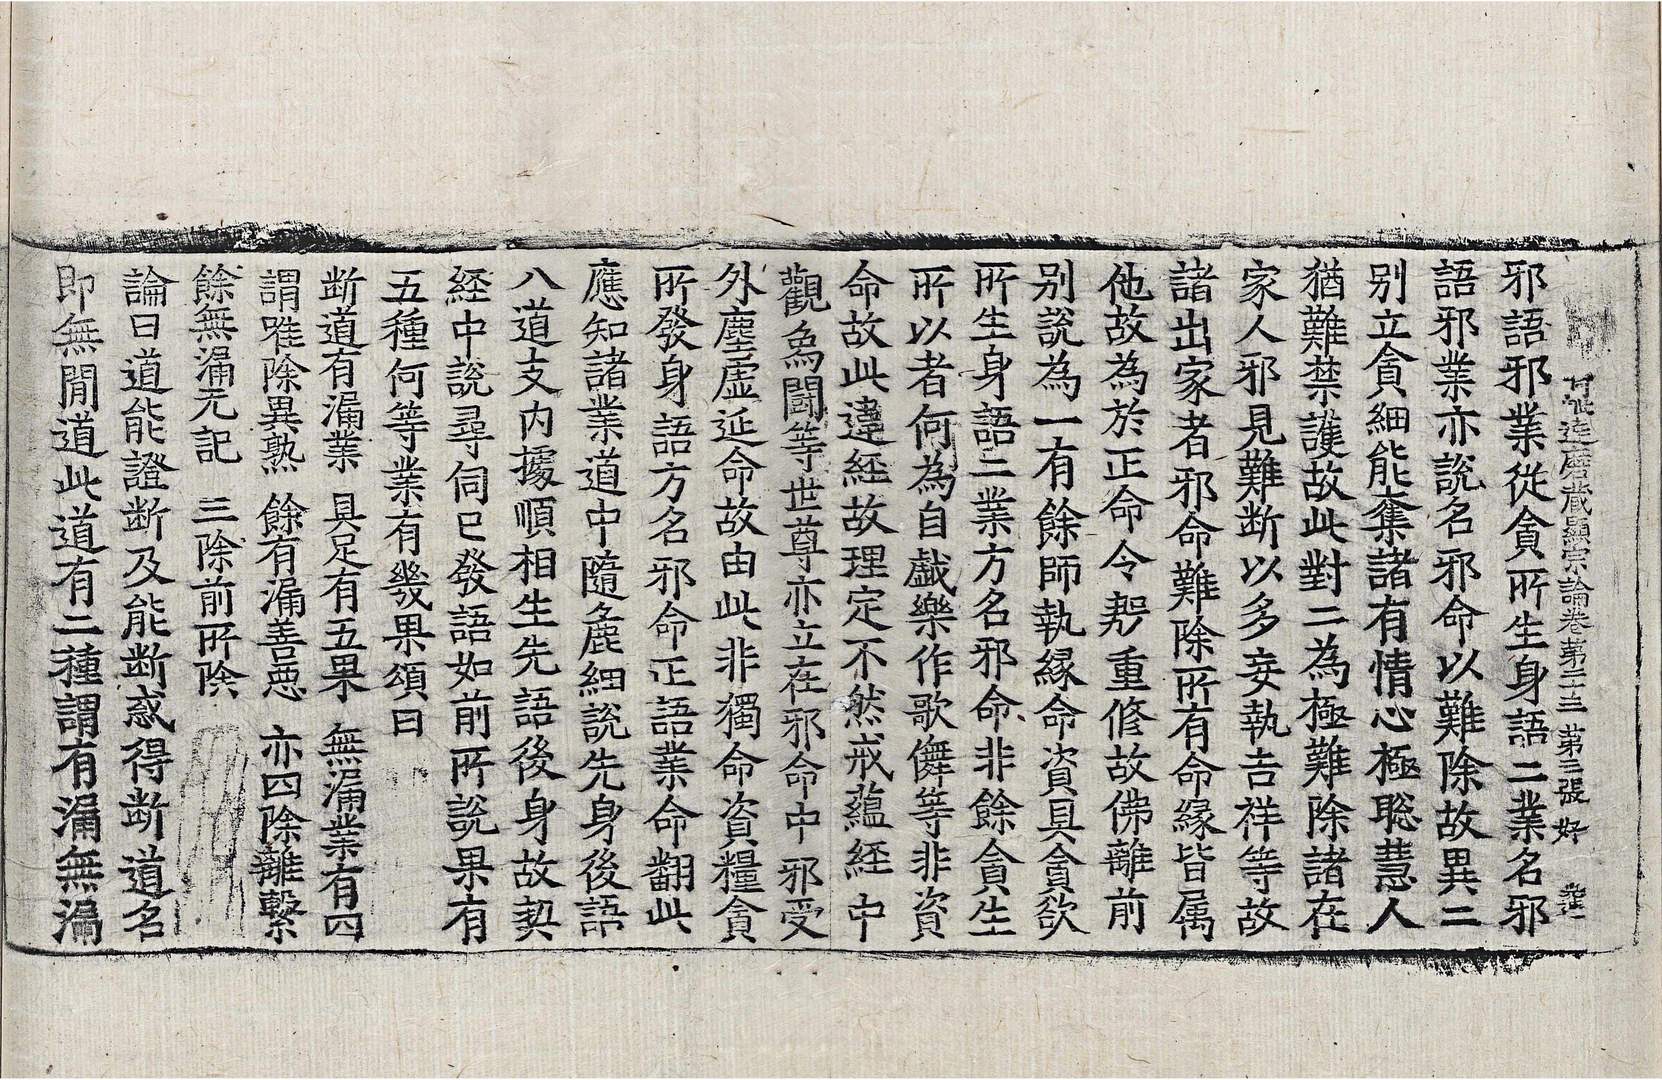 阿毗達磨藏顯宗論卷第二十三 第三張 好
邪語邪業從貪所生身語二業名邪
語邪業亦說名邪命以難除故異二
別立貪細能奪諸有情心極聡慧人
猶難禁護故此對二為極難除諸在
家人邪見難斷以多妄執吉祥等故
諸出家者邪命難除所有命緣皆属
他故為於正命令慇重修故佛離前
別說為一有餘師執緣命資具貪欲
所生身語二業方名邪命非餘貪生
所以者何為自戱樂作歌儛等非資
命故此違經故理定不然戒蘊經中
觀烏鬪等世尊亦立在邪命中邪受
外塵虛延命故由此非獨命資糧貪
所發身語方名邪命正語業命翻此
應知諸業道中隨麁細說先身後語
八道支內據順相生先語後身故契
經中說尋伺已發語如前所說果有
五種何等業有幾果頌曰
斷道有漏業 具足有五果 無漏業有四
謂唯除異熟 餘有漏善惡 亦四除離繫
餘無漏无記 三除前所除
論曰道能證斷及能斷惑得斷道名
即無閒道此道有二種謂有漏無漏